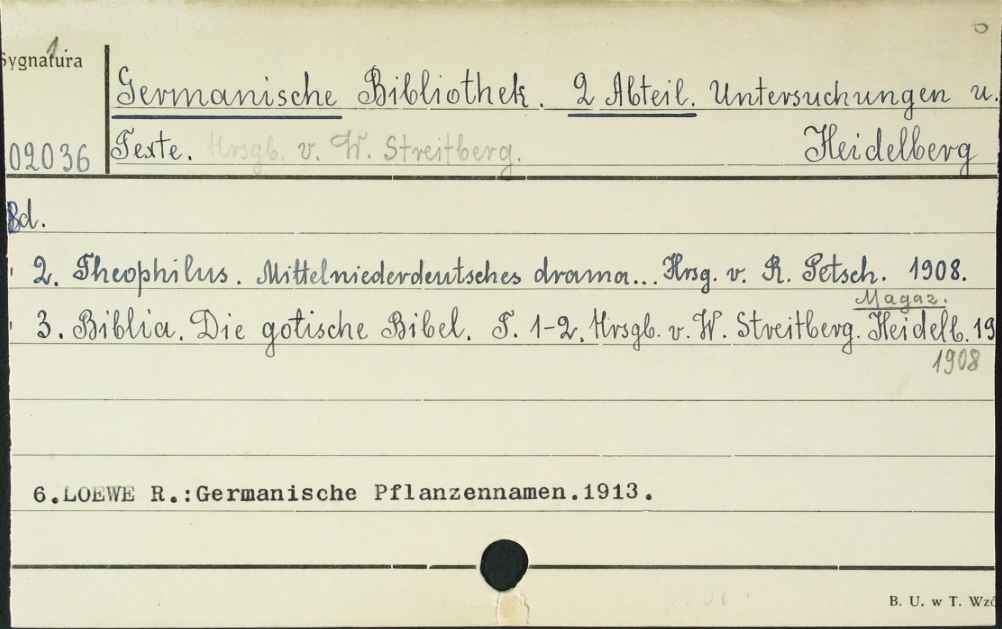 Sygnatura 1
Germanische Bibliothek. 2 Abteil. Untersuchungen u.
02036 Texte. Hrsgb. v. W. Streitberg. Heidelberg
Bd.
2. Theophilus. Mittelniederdeutsches drama... Hrsg. v. R. Petsch. 1908.
Magaz.
3. Biblia. Die gotische Bibel. T. 1-2. Hrsgb. v. W. Streitberg. Heidelb. 19
1908
6.LOEWE R.:Germanische Pflanzennamen.1913.
B. U. w T. Wzó